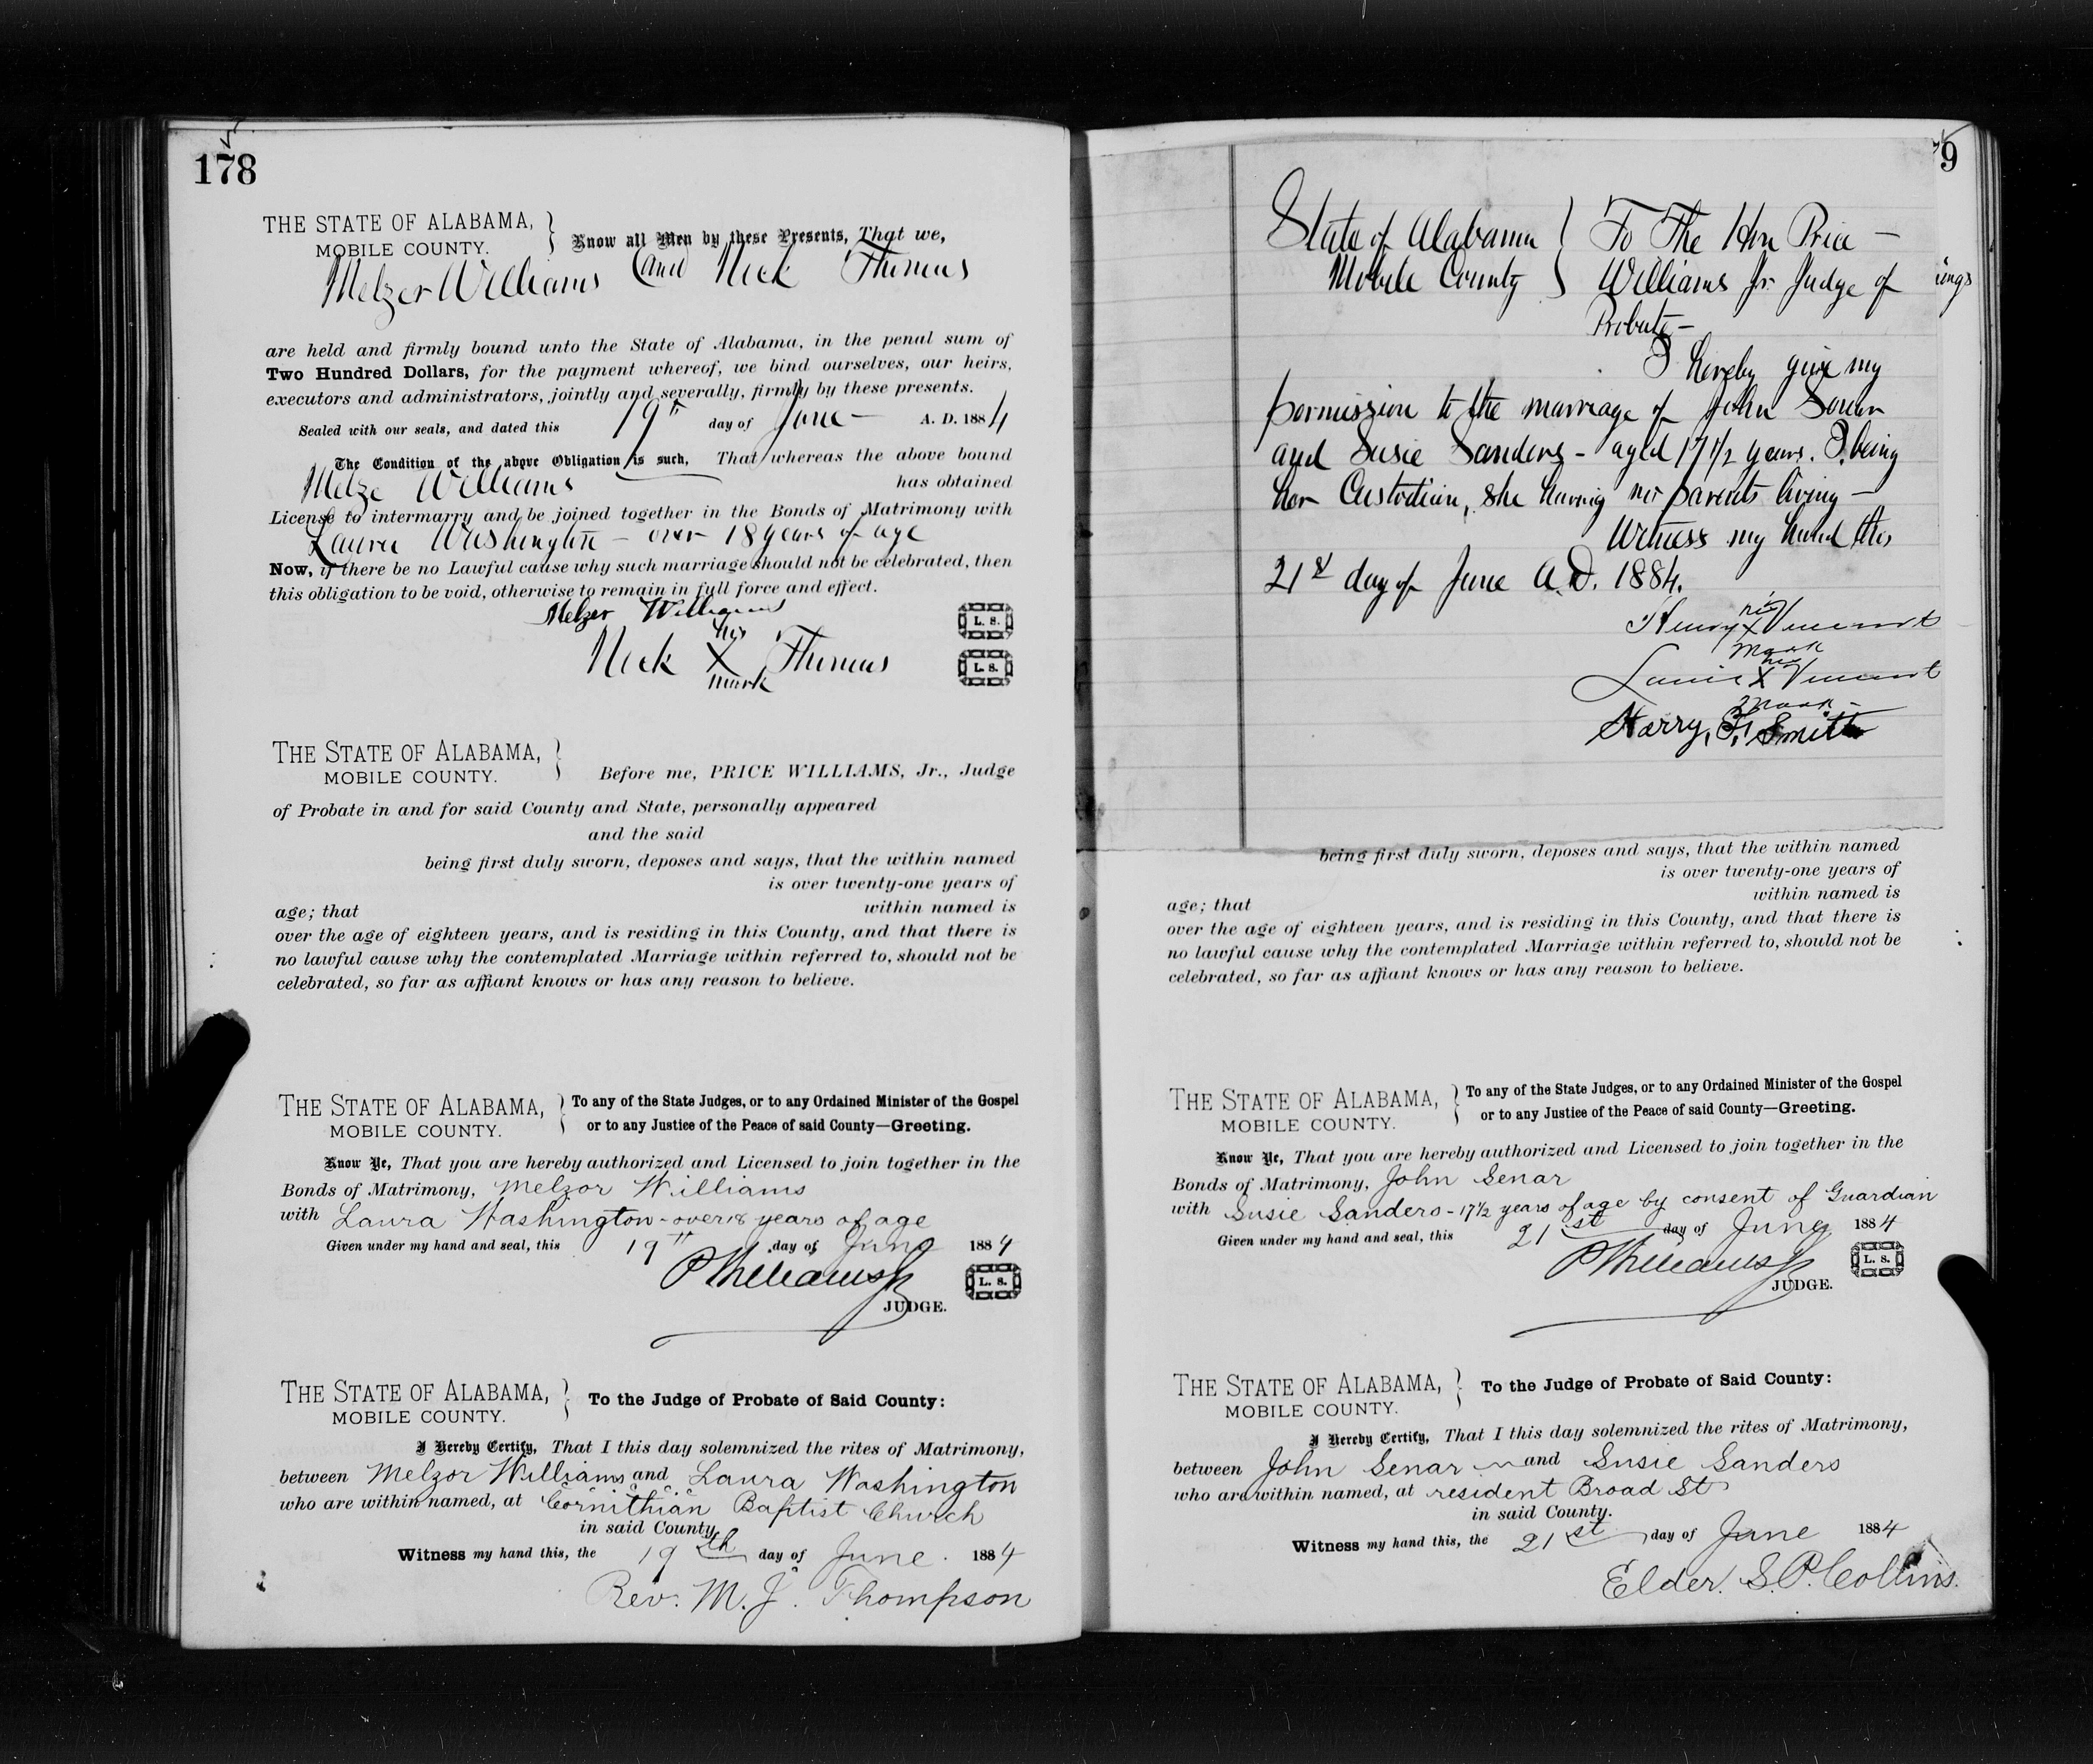 178
THE STATE OF ALABAMA,
MOBILE COUNTY.
Know all Men by these Presents, That we,
Melzer Williams and Nick Thomas
are held and firmly bound unto the State of Alabama, in the penal sum of
Two Hundred Dollars, for the payment whereof, we bind ourselves, our heirs,
executors and administrators, jointly and severally, firmly by these presents.
Sealed with our seals, and dated this 19th day of June A. D. 1884
The Condition of the above Obligation is such, That whereas the above bound
Melze Williams has obtained
License to intermarry and be joined together in the Bonds of Matrimony with
Laura Washington – over 18 years of age
Now, if there be no Lawful cause why such marriage should not be celebrated, then
this obligation to be void, otherwise to remain in full force and effect.
Melzer Williams L. S.
his
Nick X Thomas L. S.
mark
THE STATE OF ALABAMA,
MOBILE COUNTY.
Before me, PRICE WILLIAMS, Jr., Judge
of Probate in and for said County and State, personally appeared
and the said
being first duly sworn, deposes and says, that the within named
is over twenty-one years of
age; that within named is
over the age of eighteen years, and is residing in this County, and that there is
no lawful cause why the contemplated Marriage within referred to, should not be
celebrated, so far as affiant knows or has any reason to believe.
THE STATE OF ALABAMA,
MOBILE COUNTY.
To any of the State Judges, or to any Ordained Minister of the Gospel
or to any Justice of the Peace of said County—Greeting.
Know Ye, That you are hereby authorized and Licensed to join together in the
Bonds of Matrimony, Melzor Williams
with Laura Washington - over 18 years of age
Given under my hand and seal, this 19th day of June 1884
P Williams Jr L. S.
JUDGE.
THE STATE OF ALABAMA,
MOBILE COUNTY.
To the Judge of Probate of Said County:
I Hereby Certify, That I this day solemnized the rites of Matrimony,
between Melzor Williams and Laura Washington
who are within named, at Cornithian Baptist Church
in said County
Witness my hand this, the 19th day of June. 1884
Rev. M. J. Thompson
9
State of Alabama
Mobile County
To The Hon Price –
Williams Jr. Judge of
ings
Probate –
I hereby give my
permission to the marriage of John Senar
and Susie Sanders – aged 17 1/2 years. I being
her Custodian, she having no parents living –
Witness my hand this
21st day of June A.D. 1884.
his
Henry X Vincent
mark
her
X Vincent
mark –
Harry, F. Smith
being first duly sworn, deposes and says, that the within named
is over twenty-one years of
age; that within named is
over the age of eighteen years, and is residing in this County, and that there is
no lawful cause why the contemplated Marriage within referred to, should not be
celebrated, so far as affiant knows or has any reason to believe.
THE STATE OF ALABAMA,
MOBILE COUNTY.
To any of the State Judges, or to any Ordained Minister of the Gospel
or to any Justice of the Peace of said County—Greeting.
Know Ye, That you are hereby authorized and Licensed to join together in the
Bonds of Matrimony, John Senar
with Susie Sanders - 17 1/2 years of age by consent of Guardian
Given under my hand and seal, this 21st day of June 1884
P Williams Jr L. S.
JUDGE.
THE STATE OF ALABAMA,
MOBILE COUNTY.
To the Judge of Probate of Said County:
I Hereby Certify, That I this day solemnized the rites of Matrimony,
between John Senar and Susie Sanders
who are within named, at resident Broad St
in said County.
Witness my hand this, the 21st day of June 1884
Elder. S. P. Collins.